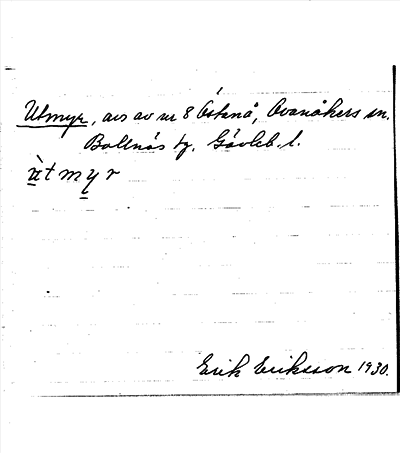 Utmyr, avs av nr 8 Östanå, Ovanåkers sn.
Bollnäs tg. Gävleb. l.
ùtmyr
Erik Eriksson 1930.